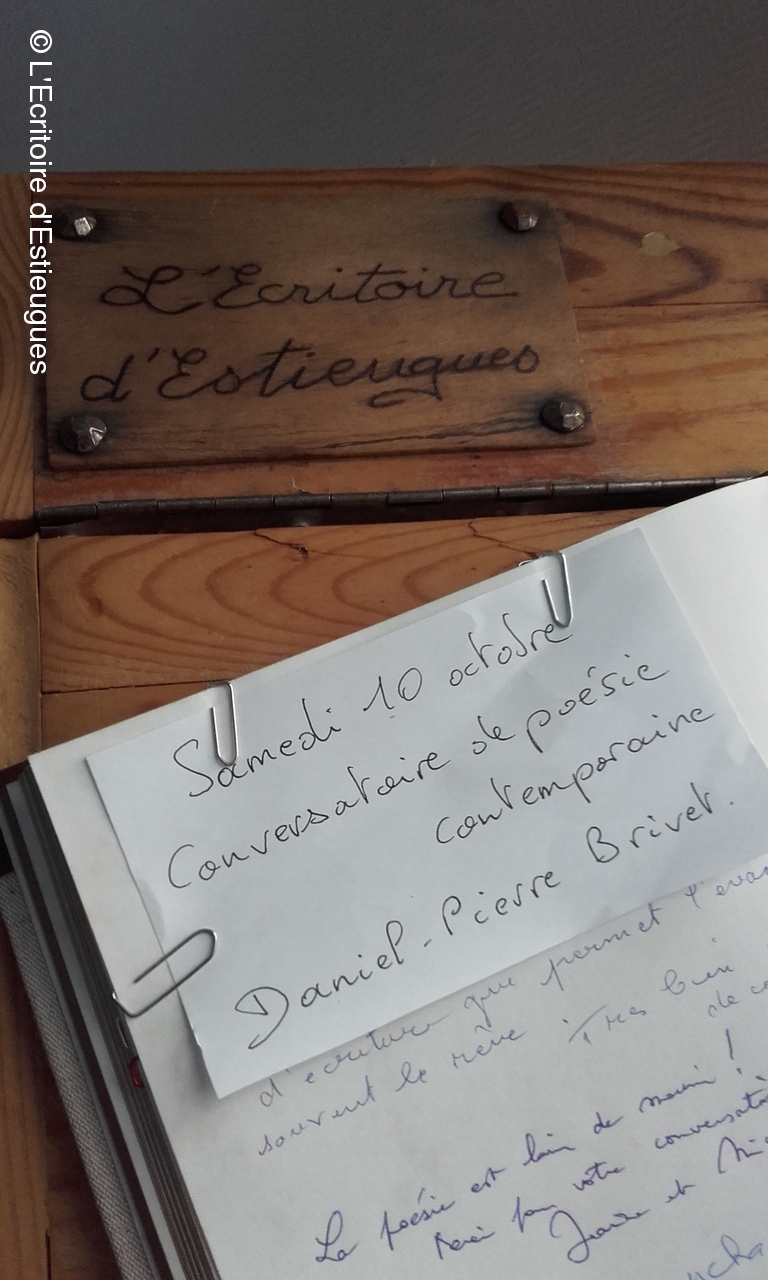 © L'Ecritoire d'Estieugues
L'Ecritoire
d'Estieugues
Samedi 10 octobre
Conversatoire de poésie
contemporaine
Daniel-Pierre Brivet.
d'écriture que permet l'évas
souvent le rêve Très bien
de co
La poésie est loin de mourir !
Merci pour votre conversati
et